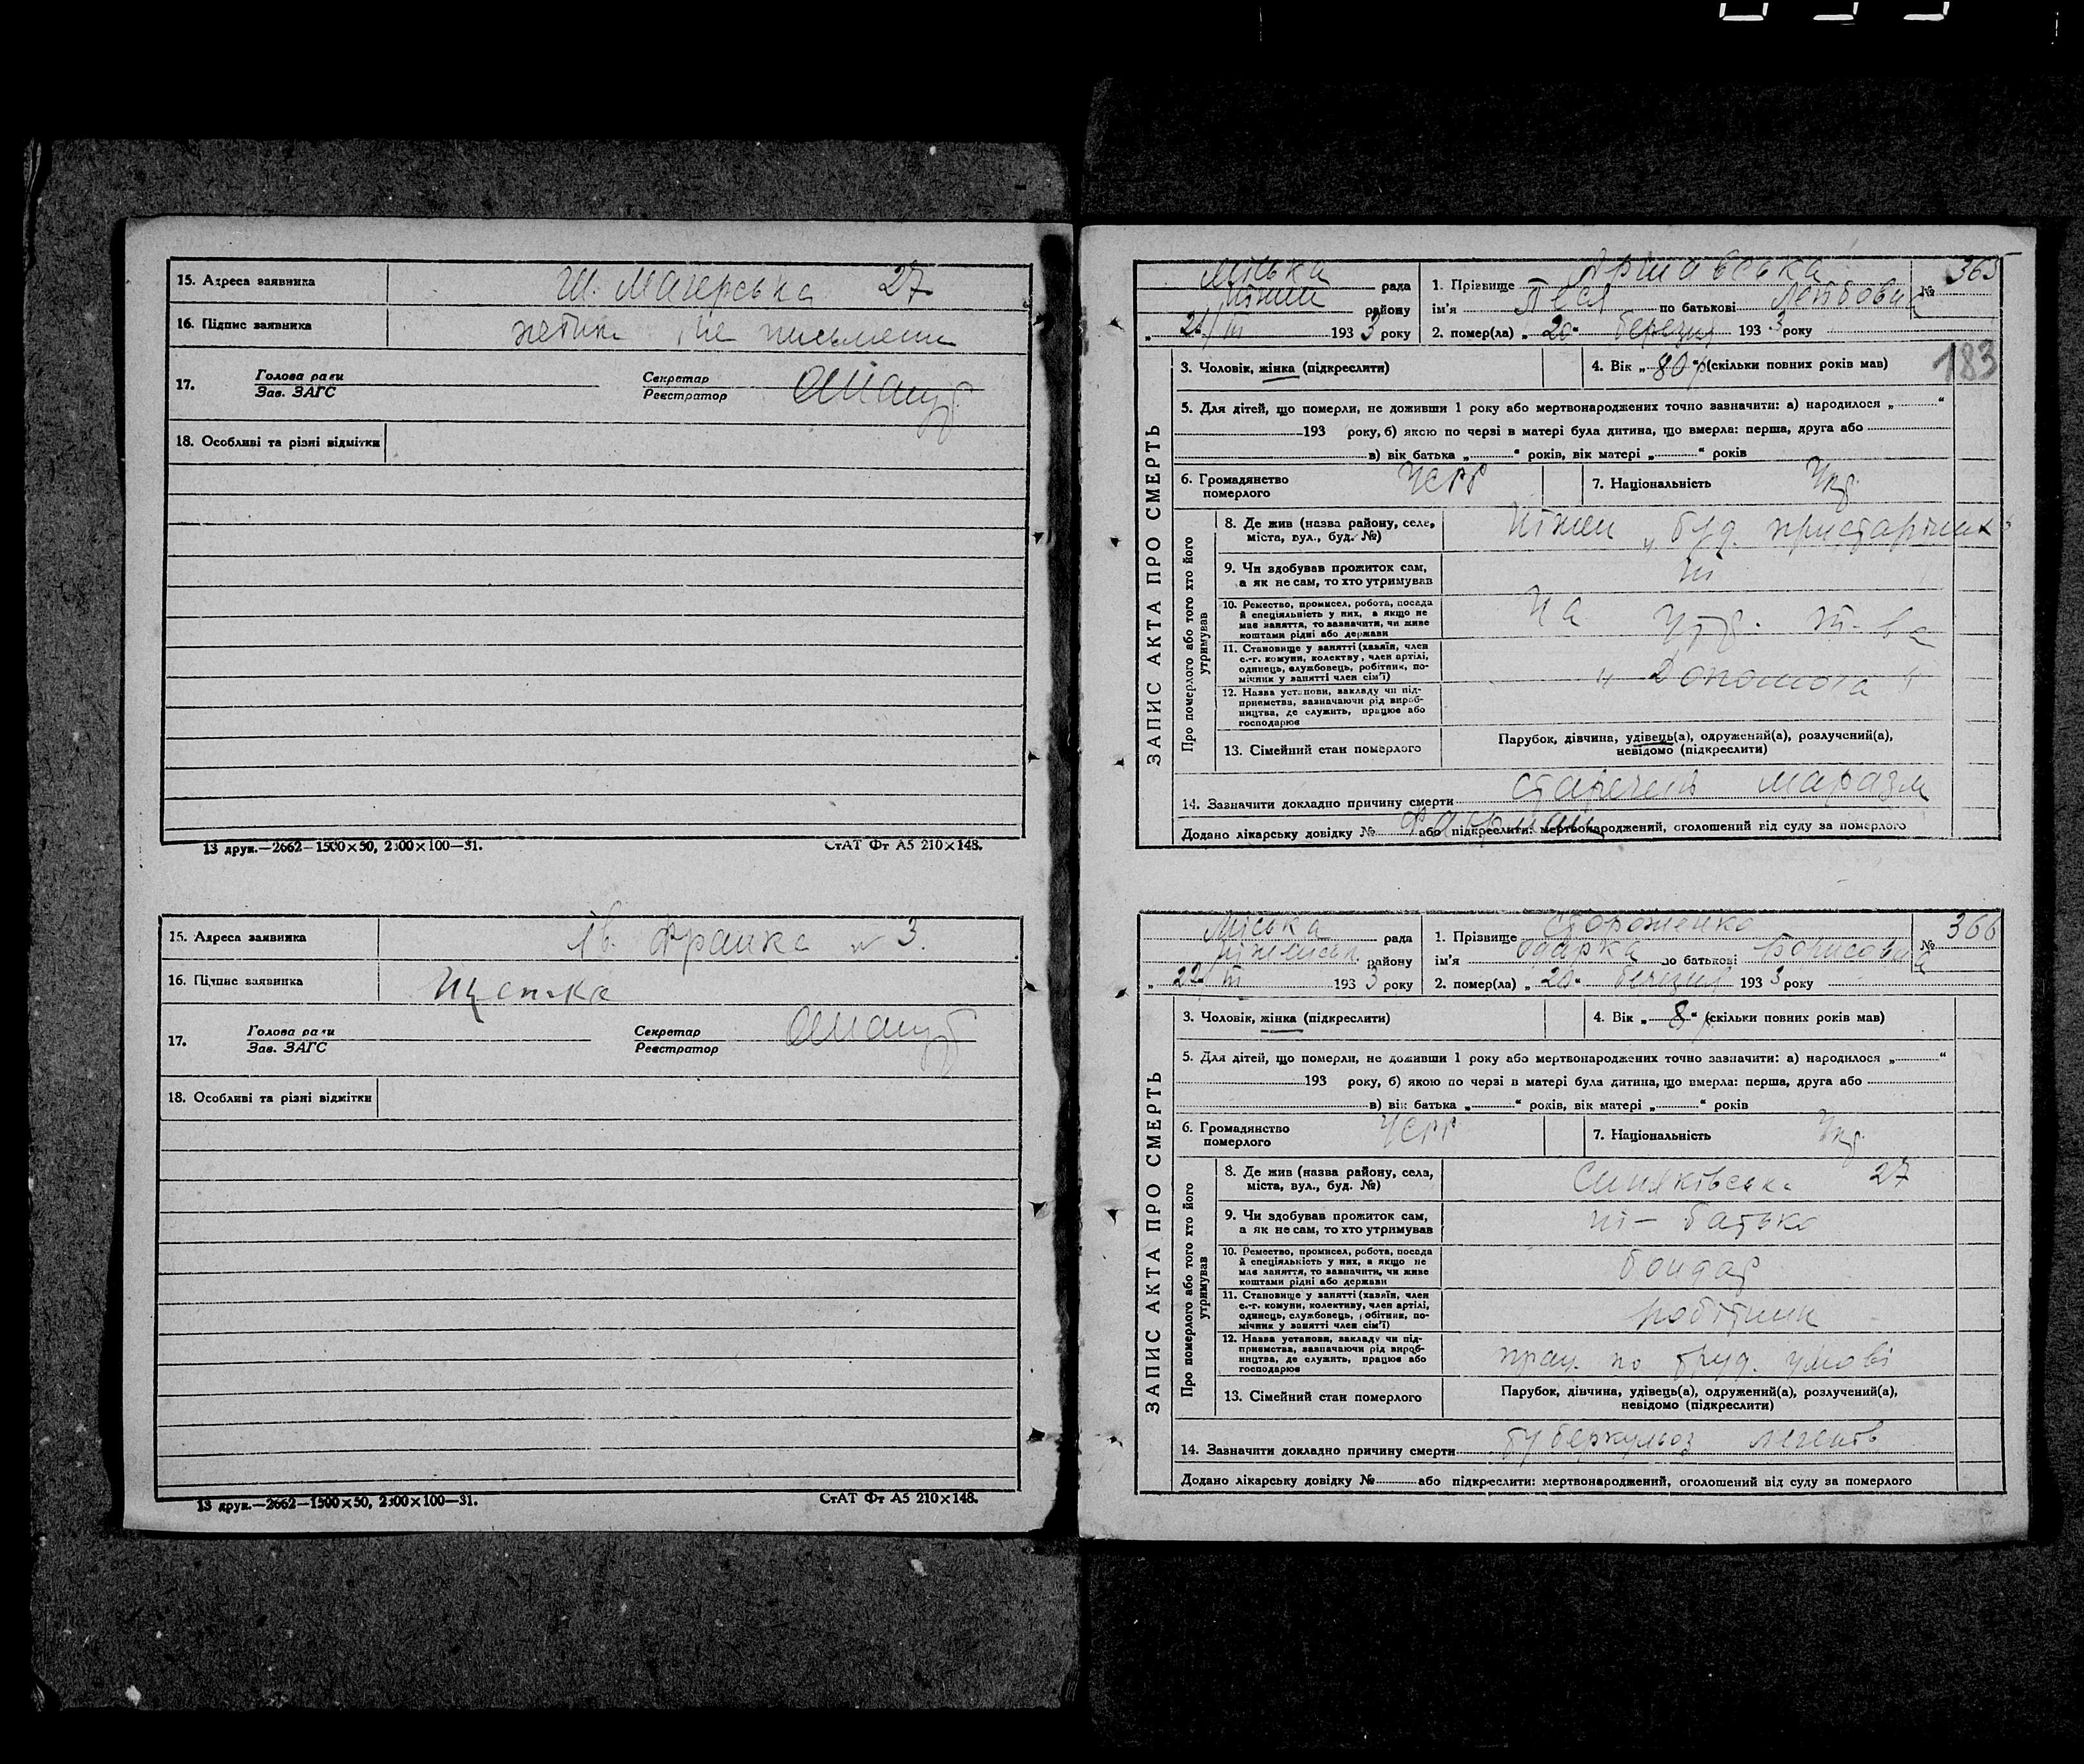 15. Адреса заявника Ш. Магерська 27
16. Підпис заявника не письмен
17. Голова ради Секретар
Зав. ЗАГС Реєстратор
18. Особливі та різні відмітки
13 друк.—2662—1500×50, 2300×100—31. СтАТ Фт А5 210×148.
15. Адреса заявника Ів. Франка № 3.
16. Підпис заявника
17. Голова ради Секретар
Зав. ЗАГС Реєстратор
18. Особливі та різні відмітки
13 друк.—2662—1500×50, 2300×100—31. СтАТ Фт А5 210×148.
ЗАПИС АКТА ПРО СМЕРТЬ
Міська рада 1. Прізвище № 365
Ніжин району ім'я по батькові
„ 21/III 1933 року 2. помер(ла) „ 20 " березня 1933 року
3. Чоловік, жінка (підкреслити) 4. Вік „ 80 " (скільки повних років мав) 183
5. Для дітей, що померли, не доживши 1 року або мертвонароджених точно зазначити: а) народилося „ "
193 року, б) якою по черзі в матері була дитина, що вмерла: перша, друга або
в) вік батька „ " років, вік матері „ " років
6. Громадянство померлого УСРР 7. Національність Укр.
Про померлого або того хто його утримував
8. Де жив (назва району, села, міста, вул., буд. №) Ніжин буд. пристарілих
9. Чи здобував прожиток сам, а як не сам, то хто утримував ні
10. Ремество, промисел, робота, посада й спеціяльність у них, а якщо не має заняття, то зазначити, чи живе коштами рідні або держави На утр. т-ва
11. Становище у занятті (хазяїн, член с.-г. комуни, колективу, член артілі, одинець, службовець, робітник, помічник у занятті член сім'ї) „Допомога"
12. Назва установи, закладу чи підприємства, зазначаючи рід виробництва, де служить, працює або господарює
13. Сімейний стан померлого Парубок, дівчина, удівець(а), одружений(а), розлучений(а), невідомо (підкреслити)
14. Зазначити докладно причину смерти старечий маразм
Додано лікарську довідку № або підкреслити: мертвонароджений, оголошений від суду за померлого
ЗАПИС АКТА ПРО СМЕРТЬ
Міська рада 1. Прізвище Стороженко № 366
Ніженськ. району ім'я Одарка по батькові Борисовна
„ 22/III 1933 року 2. помер(ла) „ 20 " березня 1933 року
3. Чоловік, жінка (підкреслити) 4. Вік „ 8 " (скільки повних років мав)
5. Для дітей, що померли, не доживши 1 року або мертвонароджених точно зазначити: а) народилося „ "
193 року, б) якою по черзі в матері була дитина, що вмерла: перша, друга або
в) вік батька „ " років, вік матері „ " років
6. Громадянство померлого УСРР 7. Національність Укр.
Про померлого або того хто його утримував
8. Де жив (назва району, села, міста, вул., буд. №) Синяківська 27
9. Чи здобував прожиток сам, а як не сам, то хто утримував ні — батько
10. Ремество, промисел, робота, посада й спеціяльність у них, а якщо не має заняття, то зазначити, чи живе коштами рідні або держави бондар
11. Становище у занятті (хазяїн, член с.-г. комуни, колективу, член артілі, одинець, службовець, робітник, помічник у занятті член сім'ї) робітник
12. Назва установи, закладу чи підприємства, зазначаючи рід виробництва, де служить, працює або господарює прац. по труд. умові
13. Сімейний стан померлого Парубок, дівчина, удівець(а), одружений(а), розлучений(а), невідомо (підкреслити)
14. Зазначити докладно причину смерти туберкульоз легенів
Додано лікарську довідку № або підкреслити: мертвонароджений, оголошений від суду за померлого